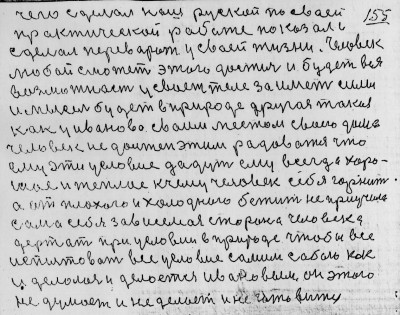 чего сделал наш руской по своей 155
практической работе показал
сделал переворот у своей жизни. Человек
любой сможет этого достич и будет вся
возможност у своем теле займет сили
и мысли будет в природе другая такая
как у иваново своим местом своего дошь
человек не должен этим радоватся что
ему эти условие дадут ему всегда хоро-
шое и теплое к чему человек себя горнит.
а от плохого и холодного бежит не приучила
сама себя зависемая сторона человека
держат при условии в природе чтобы все
испытоват все условие самим сабою как
и делолося и делоется ивановым, он этого
не думает и не делает и не